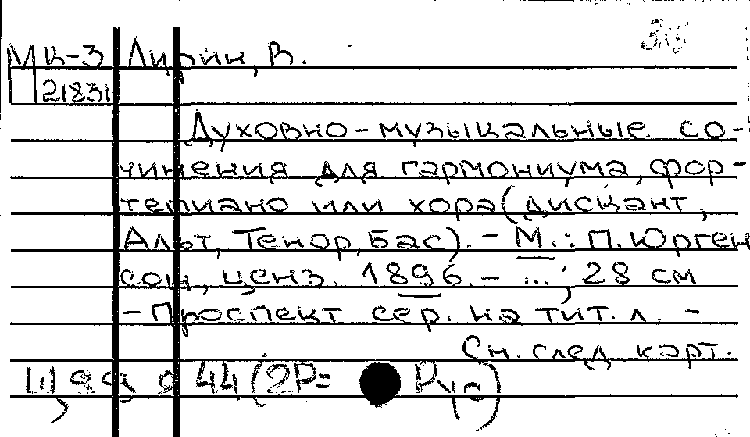 МК-3 Лирин, В.
21831
Духовно-музыкальные со-
чинения для гармониума, фор-
тепиано или хора (дискант,
Альт, Тенор, Бас). - М.: П. Юрген
сон, ценз. 1896. - ...; 28 см
- Проспект сер. на тит. л. -
См. след. карт.
44 (2Р= Рус)